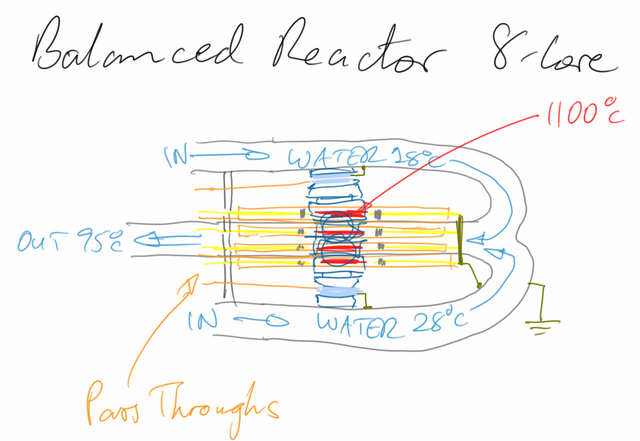 Balanced Reactor 8-Core
1100°C
IN WATER 28°C
OUT 95°C
IN WATER 28°C
Pass Throughs